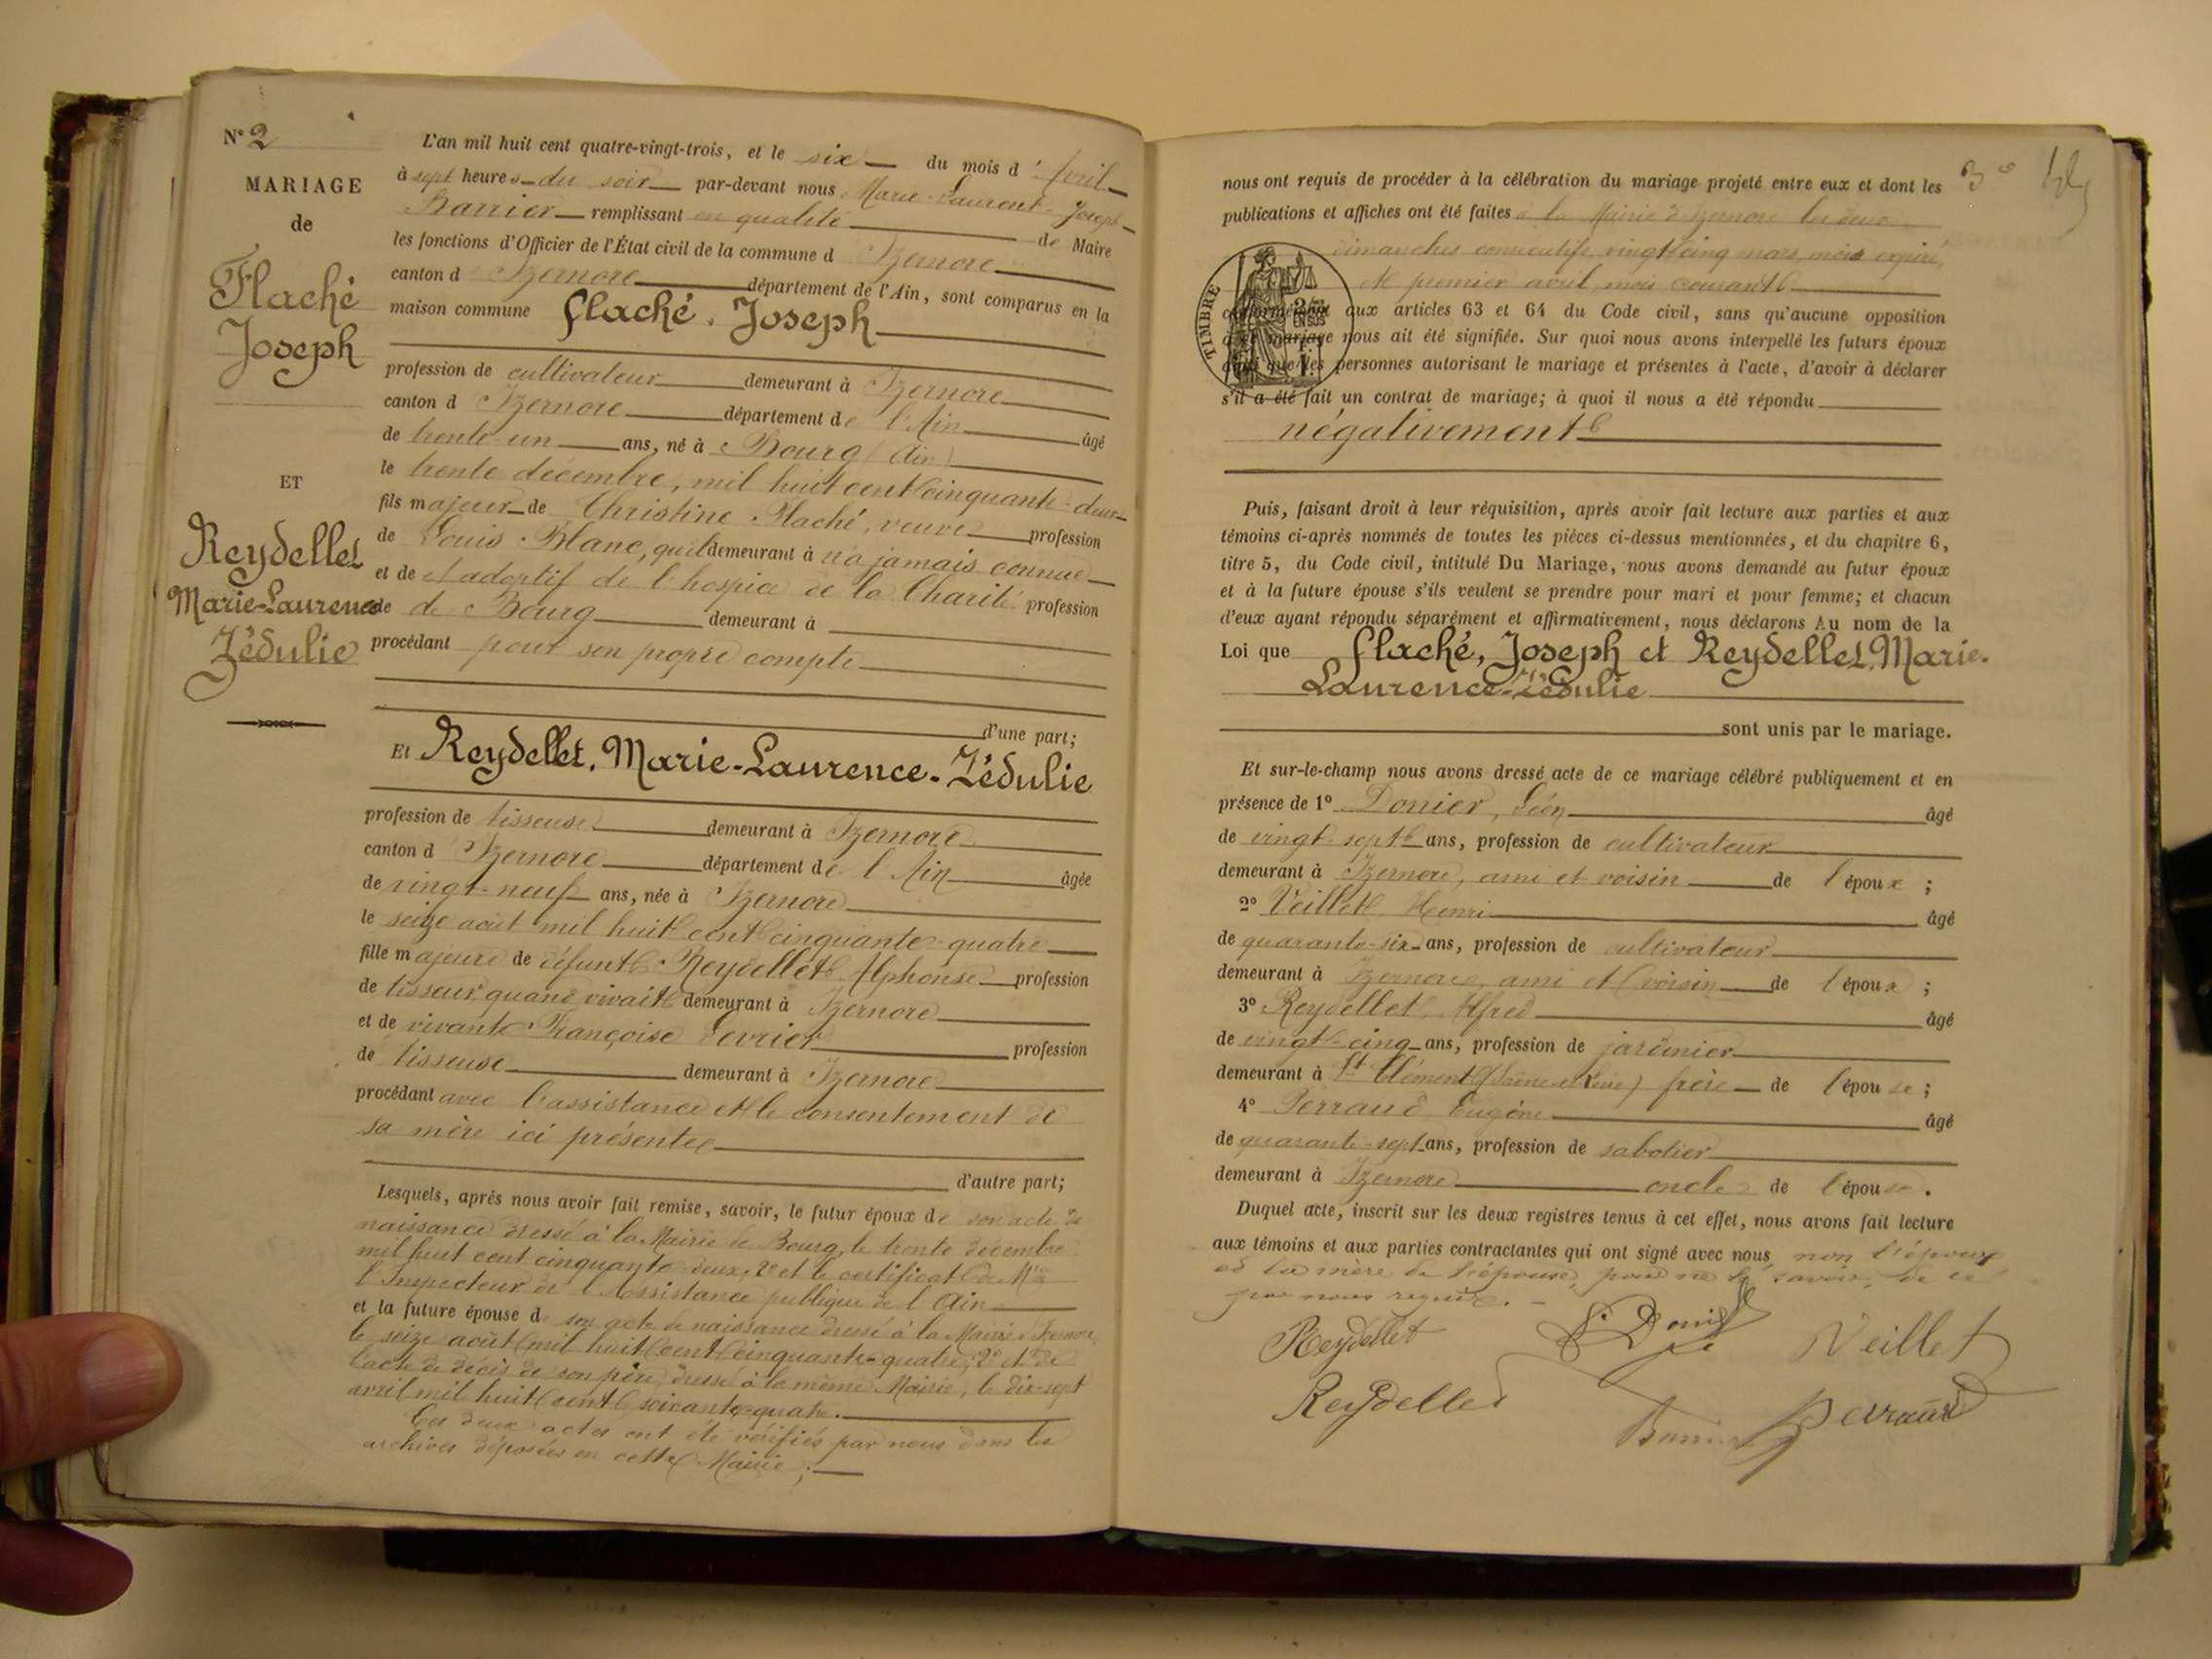 N° 2
MARIAGE
de
Flaché
Joseph
ET
Reydellet
Marie-Laurence
Zédulie
L'an mil huit cent quatre-vingt-trois, et le six du mois d'Avril
à sept heures du soir par-devant nous Marie-Laurent-Joseph
Barrier remplissant en qualité de Maire
les fonctions d'Officier de l'État civil de la commune d Izernore
canton d Izernore département de l'Ain, sont comparus en la
maison commune Flaché, Joseph
profession de cultivateur demeurant à Izernore
canton d Izernore département de l'Ain âgé
de trente-un ans, né à Bourg (Ain)
le trente décembre, mil huit cent cinquante-deux
fils majeur de Christine Flaché, veuve profession
de Louis Blanc, qu'il demeurant à n'a jamais connue
et de et adoptif de l'hospice de la Charité profession
de de Bourg demeurant à
procédant pour son propre compte
d'une part;
Et Reydellet, Marie-Laurence-Zédulie
profession de tisseuse demeurant à Izernore
canton d Izernore département de l'Ain âgée
de vingt-neuf ans, née à Izernore
le seize août mil huit cent cinquante-quatre
fille majeure de défunt Reydellet Alphonse profession
de tisseur, quand vivait demeurant à Izernore
et de vivante Françoise Sevrier profession
de tisseuse demeurant à Izernore
procédant avec l'assistance et le consentement de
sa mère ici présente
d'autre part;
Lesquels, après nous avoir fait remise, savoir, le futur époux de son acte de
naissance dressé à la Mairie de Bourg, le trente décembre
mil huit cent cinquante-deux, 2° et le certificat de Mr
l'Inspecteur de l'Assistance publique de l'Ain
et la future épouse de son acte de naissance dressé à la Mairie d'Izernore,
le seize août mil huit cent cinquante-quatre; 2° et de
l'acte de décès de son père, dressé à la même Mairie, le dix-sept
avril mil huit cent soixante-quatre.
Ces deux actes ont été vérifiés par nous dans les
archives déposées en cette Mairie;
nous ont requis de procéder à la célébration du mariage projeté entre eux et dont les
publications et affiches ont été faites à la Mairie d'Izernore les deux
dimanches consécutifs, vingt-cinq mars, mois expiré,
et premier avril, mois courant
TIMBRE
conformément aux articles 63 et 64 du Code civil, sans qu'aucune opposition
à ce mariage nous ait été signifiée. Sur quoi nous avons interpellé les futurs époux
ainsi que les personnes autorisant le mariage et présentes à l'acte, d'avoir à déclarer
s'il a été fait un contrat de mariage; à quoi il nous a été répondu
négativement
Puis, faisant droit à leur réquisition, après avoir fait lecture aux parties et aux
témoins ci-après nommés de toutes les pièces ci-dessus mentionnées, et du chapitre 6,
titre 5, du Code civil, intitulé Du Mariage, nous avons demandé au futur époux
et à la future épouse s'ils veulent se prendre pour mari et pour femme; et chacun
d'eux ayant répondu séparément et affirmativement, nous déclarons Au nom de la
Loi que Flaché, Joseph et Reydellet, Marie-
Laurence-Zédulie
sont unis par le mariage.
Et sur-le-champ nous avons dressé acte de ce mariage célébré publiquement et en
présence de 1° Donier, Léon âgé
de vingt-sept ans, profession de cultivateur
demeurant à Izernore, ami et voisin de l'époux;
2° Veillet Henri âgé
de quarante-six ans, profession de cultivateur
demeurant à Izernore, ami et voisin de l'époux;
3° Reydellet Alfred âgé
de vingt-cinq ans, profession de jardinier
demeurant à St Clément (Saône-et-Loire) frère de l'épouse;
4° Perraud Eugène âgé
de quarante-sept ans, profession de sabotier
demeurant à Izernore oncle de l'épouse.
Duquel acte, inscrit sur les deux registres tenus à cet effet, nous avons fait lecture
aux témoins et aux parties contractantes qui ont signé avec nous, non l'époux
et la mère de l'épouse, pour ne le savoir, de ce
par nous requis.
Reydellet
Veillet
Reydellet
Perraud